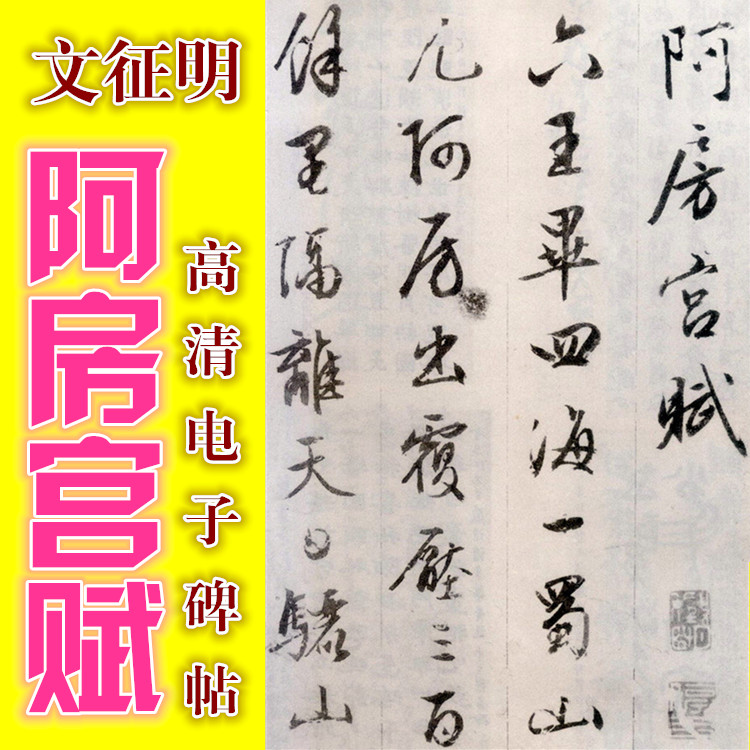 文征明
阿房宫赋
高清电子碑帖
阿房宮賦
六王畢四海一蜀山
兀阿房出覆壓三百
餘里隔離天日驪山